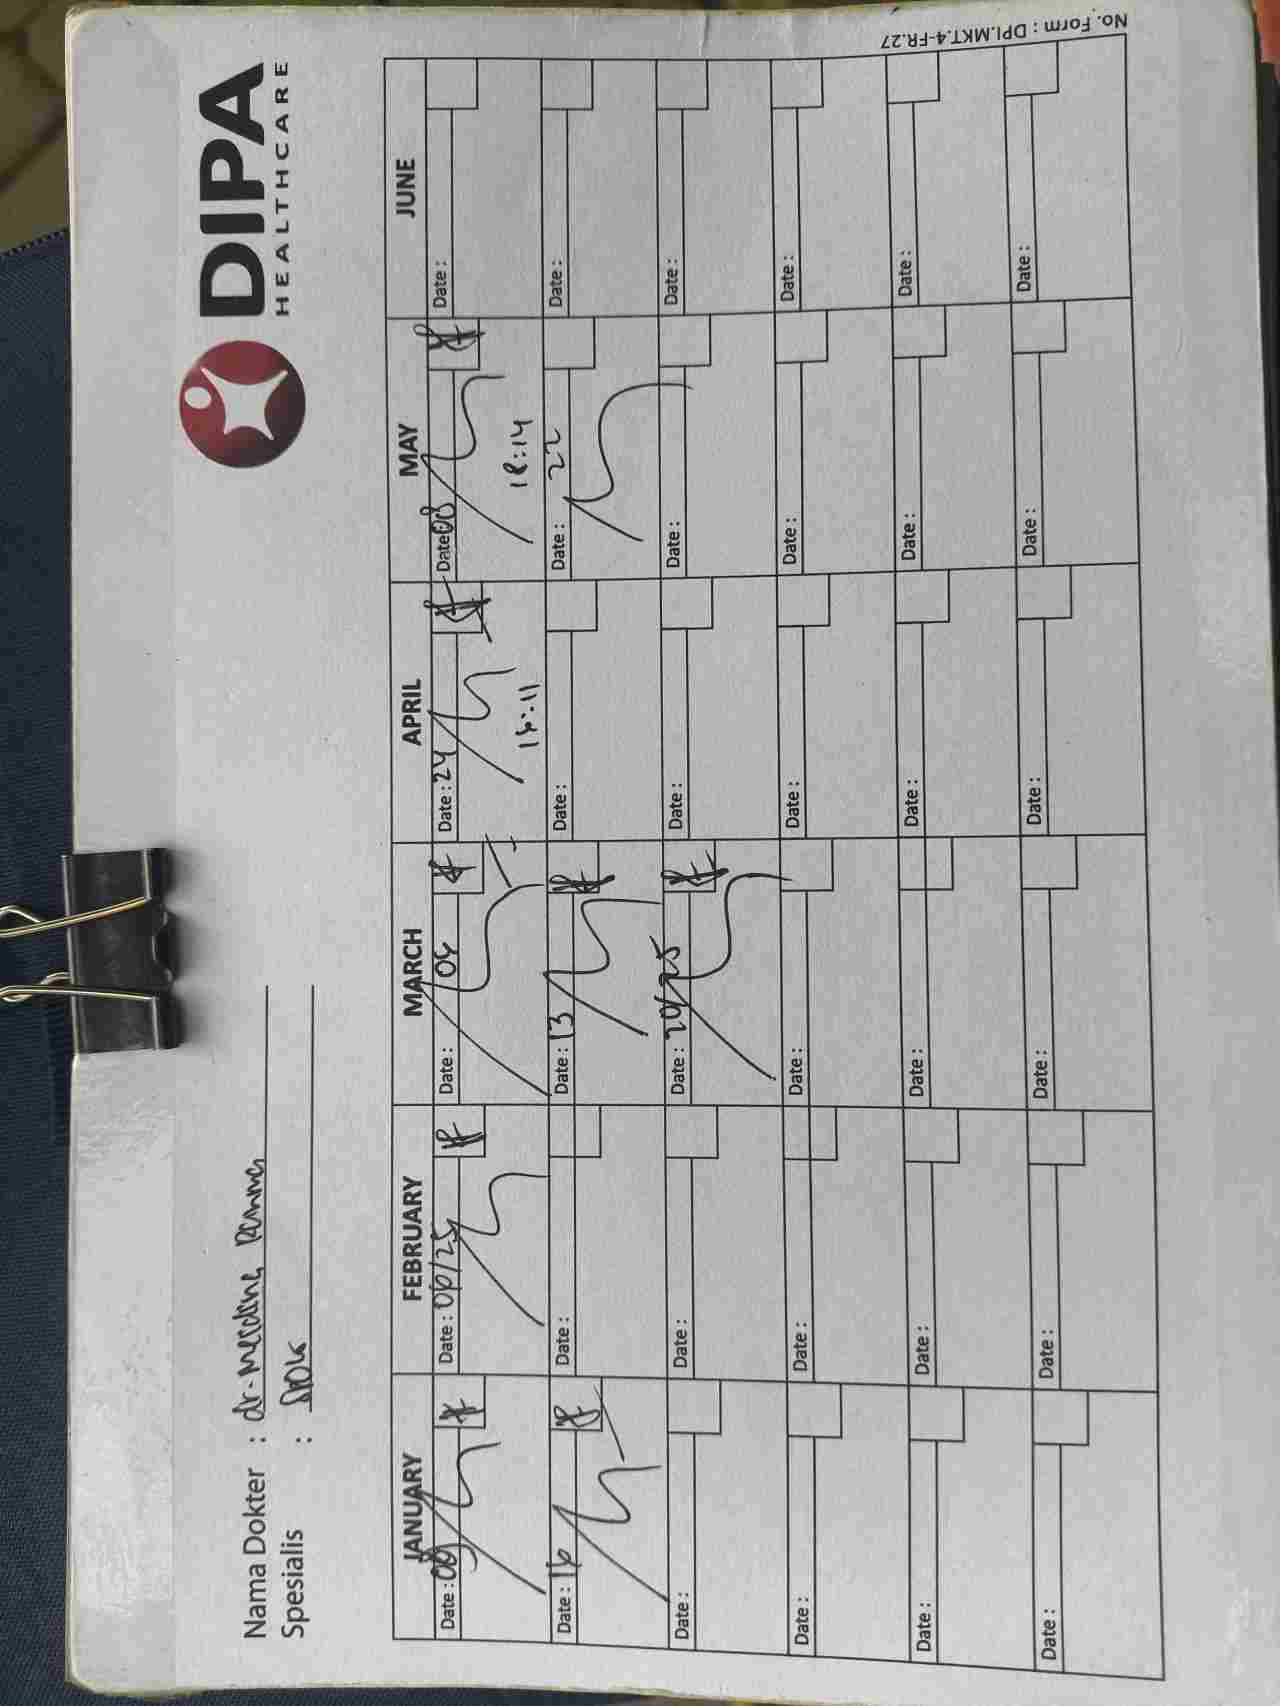 DIPA
HEALTHCARE
Nama Dokter :
Spesialis :
JANUARY FEBRUARY MARCH APRIL MAY JUNE
Date : 09 Date : 06/25 Date : Date : 24 Date : 08 Date :
18:14
Date : 16 Date : Date : 13 Date : Date : 22 Date :
Date : Date : Date : 20/25 Date : Date : Date :
Date : Date : Date : Date : Date : Date :
Date : Date : Date : Date : Date : Date :
Date : Date : Date : Date : Date : Date :
No. Form : DPI.MKT.4-FR.27